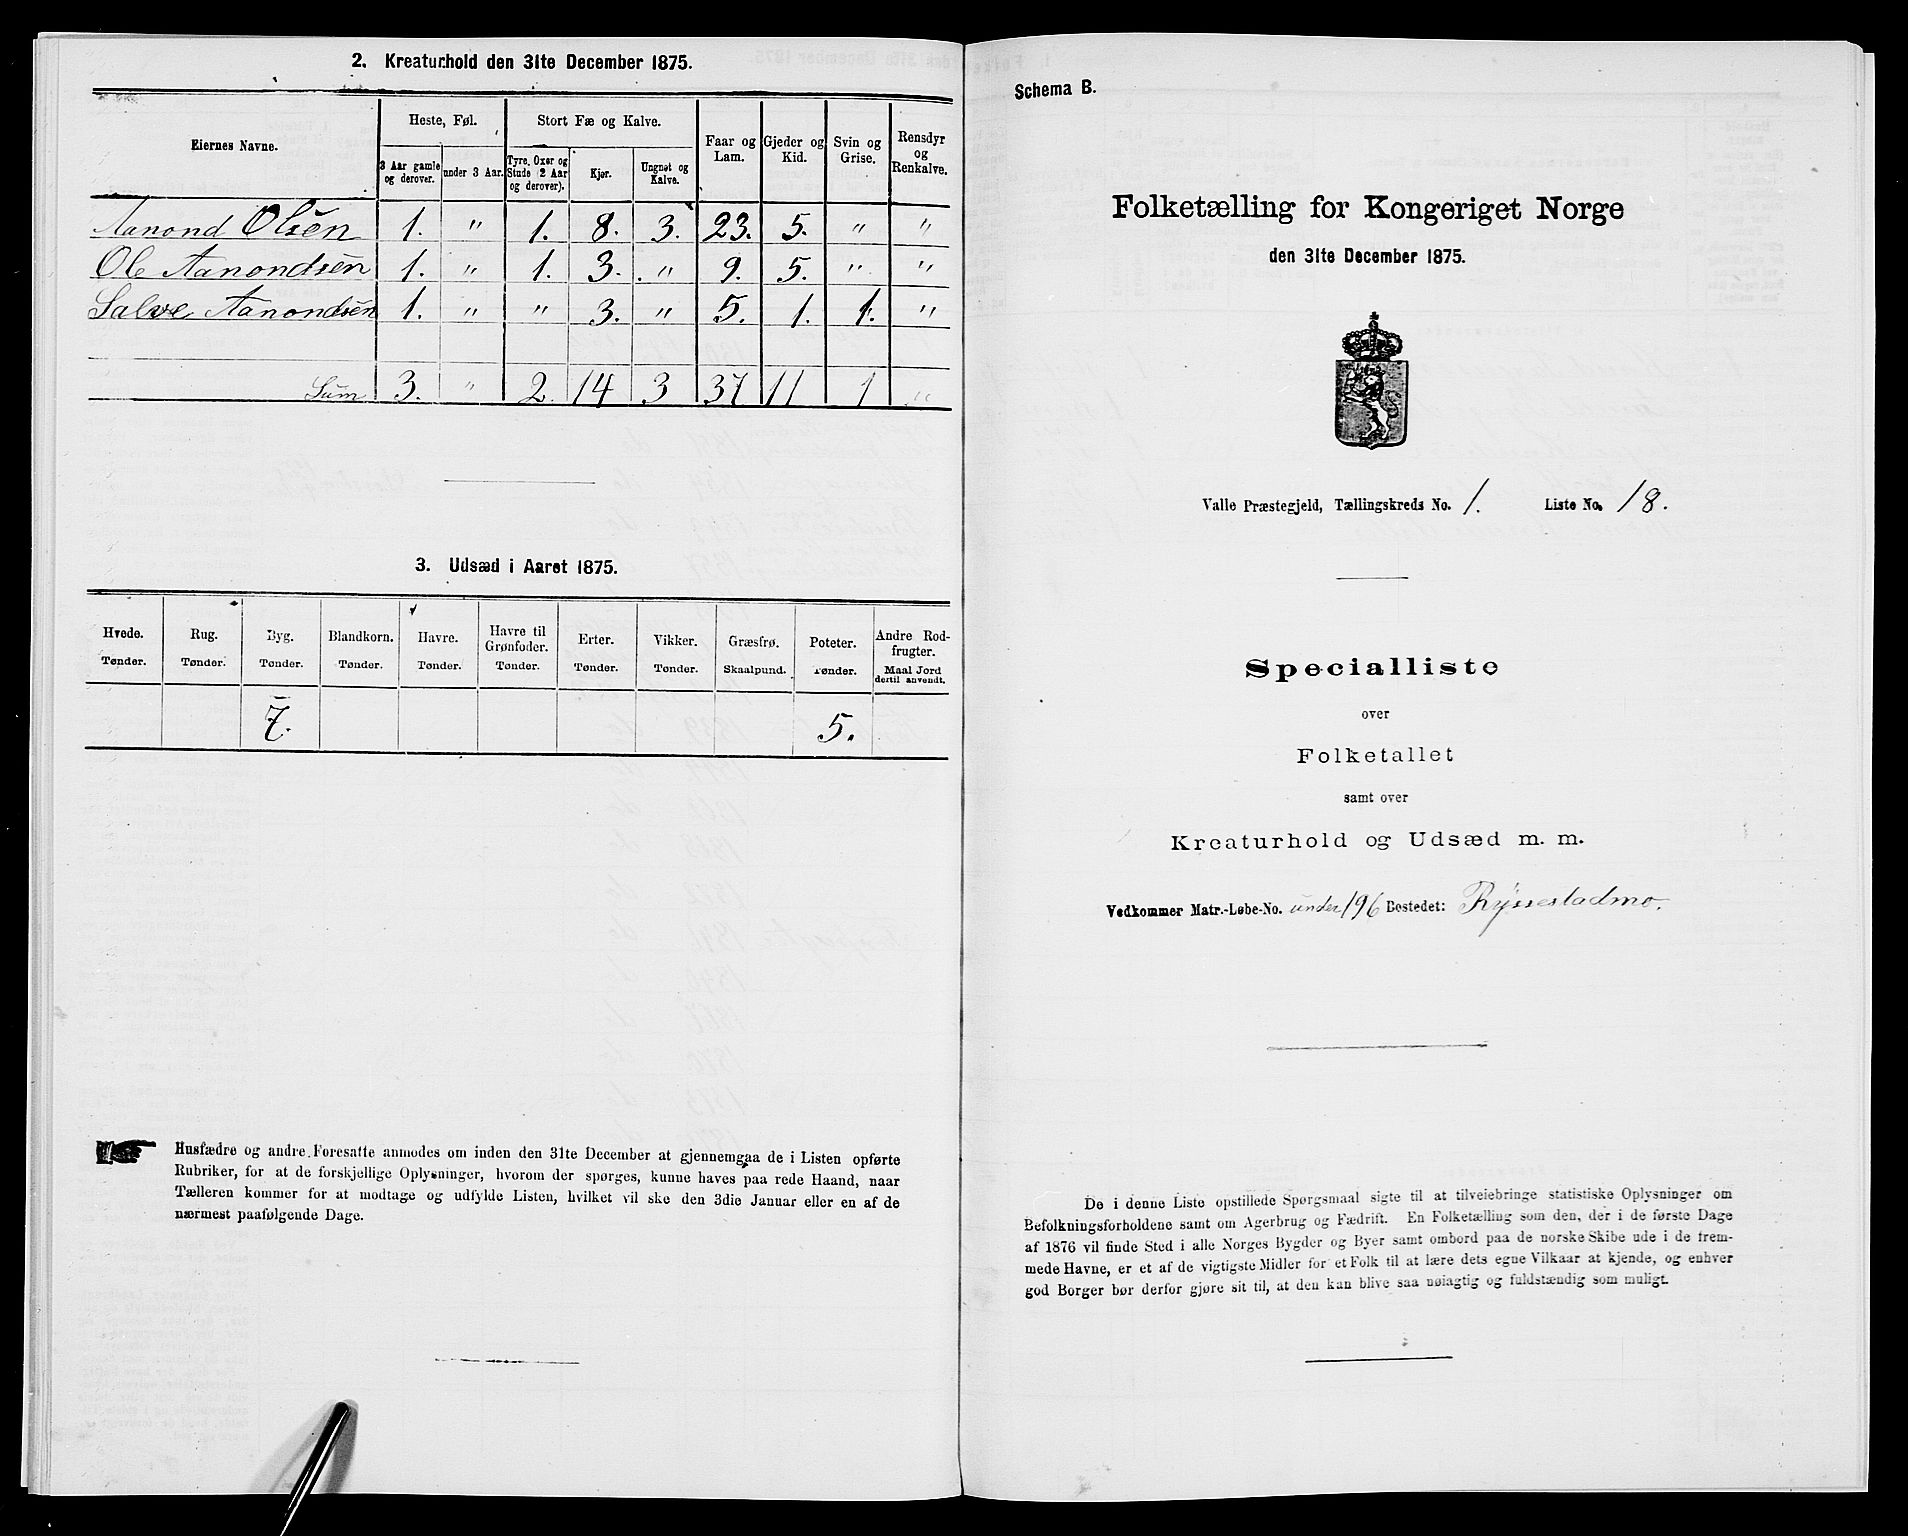 2. Kreaturhold den 31te December 1875.
Eiernes Navne.
Heste, Føl.
Stort Fæ og Kalve.
Faar og Lam.
Gjeder og Kid.
Svin og Grise.
Rensdyr og Renkalve.
3 Aar gamle og derover.
under 3 Aar.
Tyre, Oxer og Stude (2 Aar og derover).
Kjør.
Ungnøt og Kalve.
Aanond Olsen 1. " 1. 8. 3. 23. 5. " "
Ole Aanondsen 1. " 1. 3. " 9. 5. " "
Salve Aanondsen 1. " " 3. " 5. 1. 1. "
Sum 3. " 2. 14 3 37 11 1 "
3. Udsæd i Aaret 1875.
Hvede. Tønder.
Rug. Tønder.
Byg. Tønder.
Blandkorn. Tønder.
Havre. Tønder.
Havre til Grønfoder. Tønder.
Erter. Tønder.
Vikker. Tønder.
Græsfrø. Skaalpund.
Poteter. Tønder.
Andre Rodfrugter. Maal Jord dertil anvendt.
7. 5.
Husfædre og andre Foresatte anmodes om inden den 31te December at gjennemgaa de i Listen opførte
Rubriker, for at de forskjellige Oplysninger, hvorom der spørges, kunne haves paa rede Haand, naar
Tælleren kommer for at modtage og udfylde Listen, hvilket vil ske den 3die Januar eller en af de
nærmest paafølgende Dage.
Schema B.
Folketælling for Kongeriget Norge
den 31te December 1875.
Valle Præstegjeld, Tællingskreds No. 1. Liste No. 18.
Specialliste
over
Folketallet
samt over
Kreaturhold og Udsæd m. m.
Vedkommer Matr.-Løbe-No. under 196 Bostedet: Ryssestadmo.
De i denne Liste opstillede Spørgsmaal sigte til at tilveiebringe statistiske Oplysninger om
Befolkningsforholdene samt om Agerbrug og Fædrift. En Folketælling som den, der i de første Dage
af 1876 vil finde Sted i alle Norges Bygder og Byer samt ombord paa de norske Skibe ude i de frem-
mede Havne, er et af de vigtigste Midler for et Folk til at lære dets egne Vilkaar at kjende, og enhver
god Borger bør derfor gjøre sit til, at den kan blive saa nøiagtig og fuldstændig som muligt.